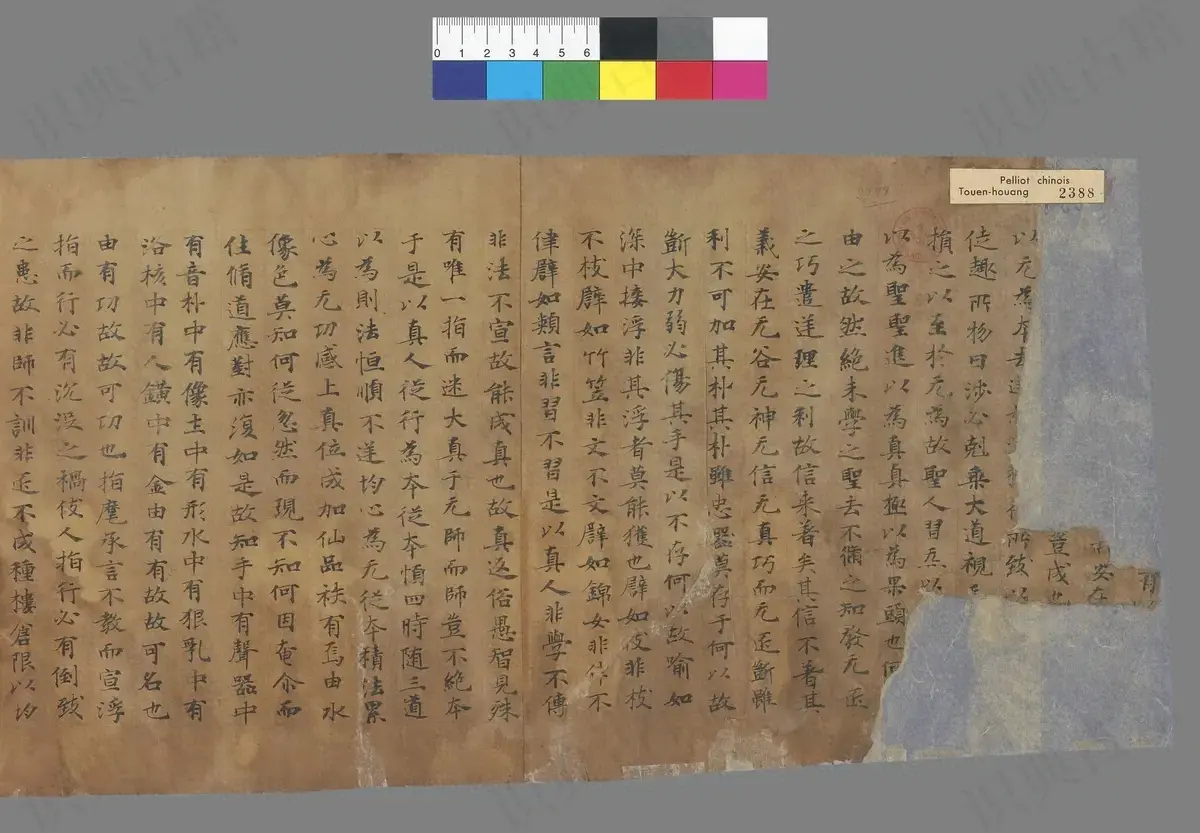 Pelliot chinois
Touen-houang 2388
0 1 2 3 4 5 6
有
而安在
豈成也
所致
以无為本去
徒趣所物日涉必剋乘大道視
損之以至於无為故聖人習炁以
以為聖聖進以為真真極以為果頭也何
由之故然絕未學之聖去不備之知發无迊
之巧遣逆理之利故信来著矣其信不著其
義安在无谷无神无信无真巧而无迊斷雖
利不可加其朴其朴雖忠器莫存于何以故
斷大力弱必傷其手是以不存何以故喻如
深中接浮非其浮者莫能獲也譬如伎非枝
不枝譬如竹笠非文不文譬如錦女非作不
律譬如類言非習不習是以真人非學不傳
非法不宣故能成真也故真返俗愚智見殊
有唯一指而迷大真于无師而師豈不絕本
于是以真人從行為本從本慎四時随三道
以為則法恒順不逆均心為无從本積法累
心為无功感上真位成加仙品袟有焉由水
像色莫知何從忽然而現不知何因奄尒而
住脩道應對亦復如是故知手中有聲器中
有音朴中有像土中有形水中有狠乳中有
洛核中有人鑛中有金由有有故故可名也
由有功故故可功也指麾承言不教而宣浮
指而行必有沉没之禍伎人指行必有倒致
之患故非師不訓非迊不成種樓倉限以均